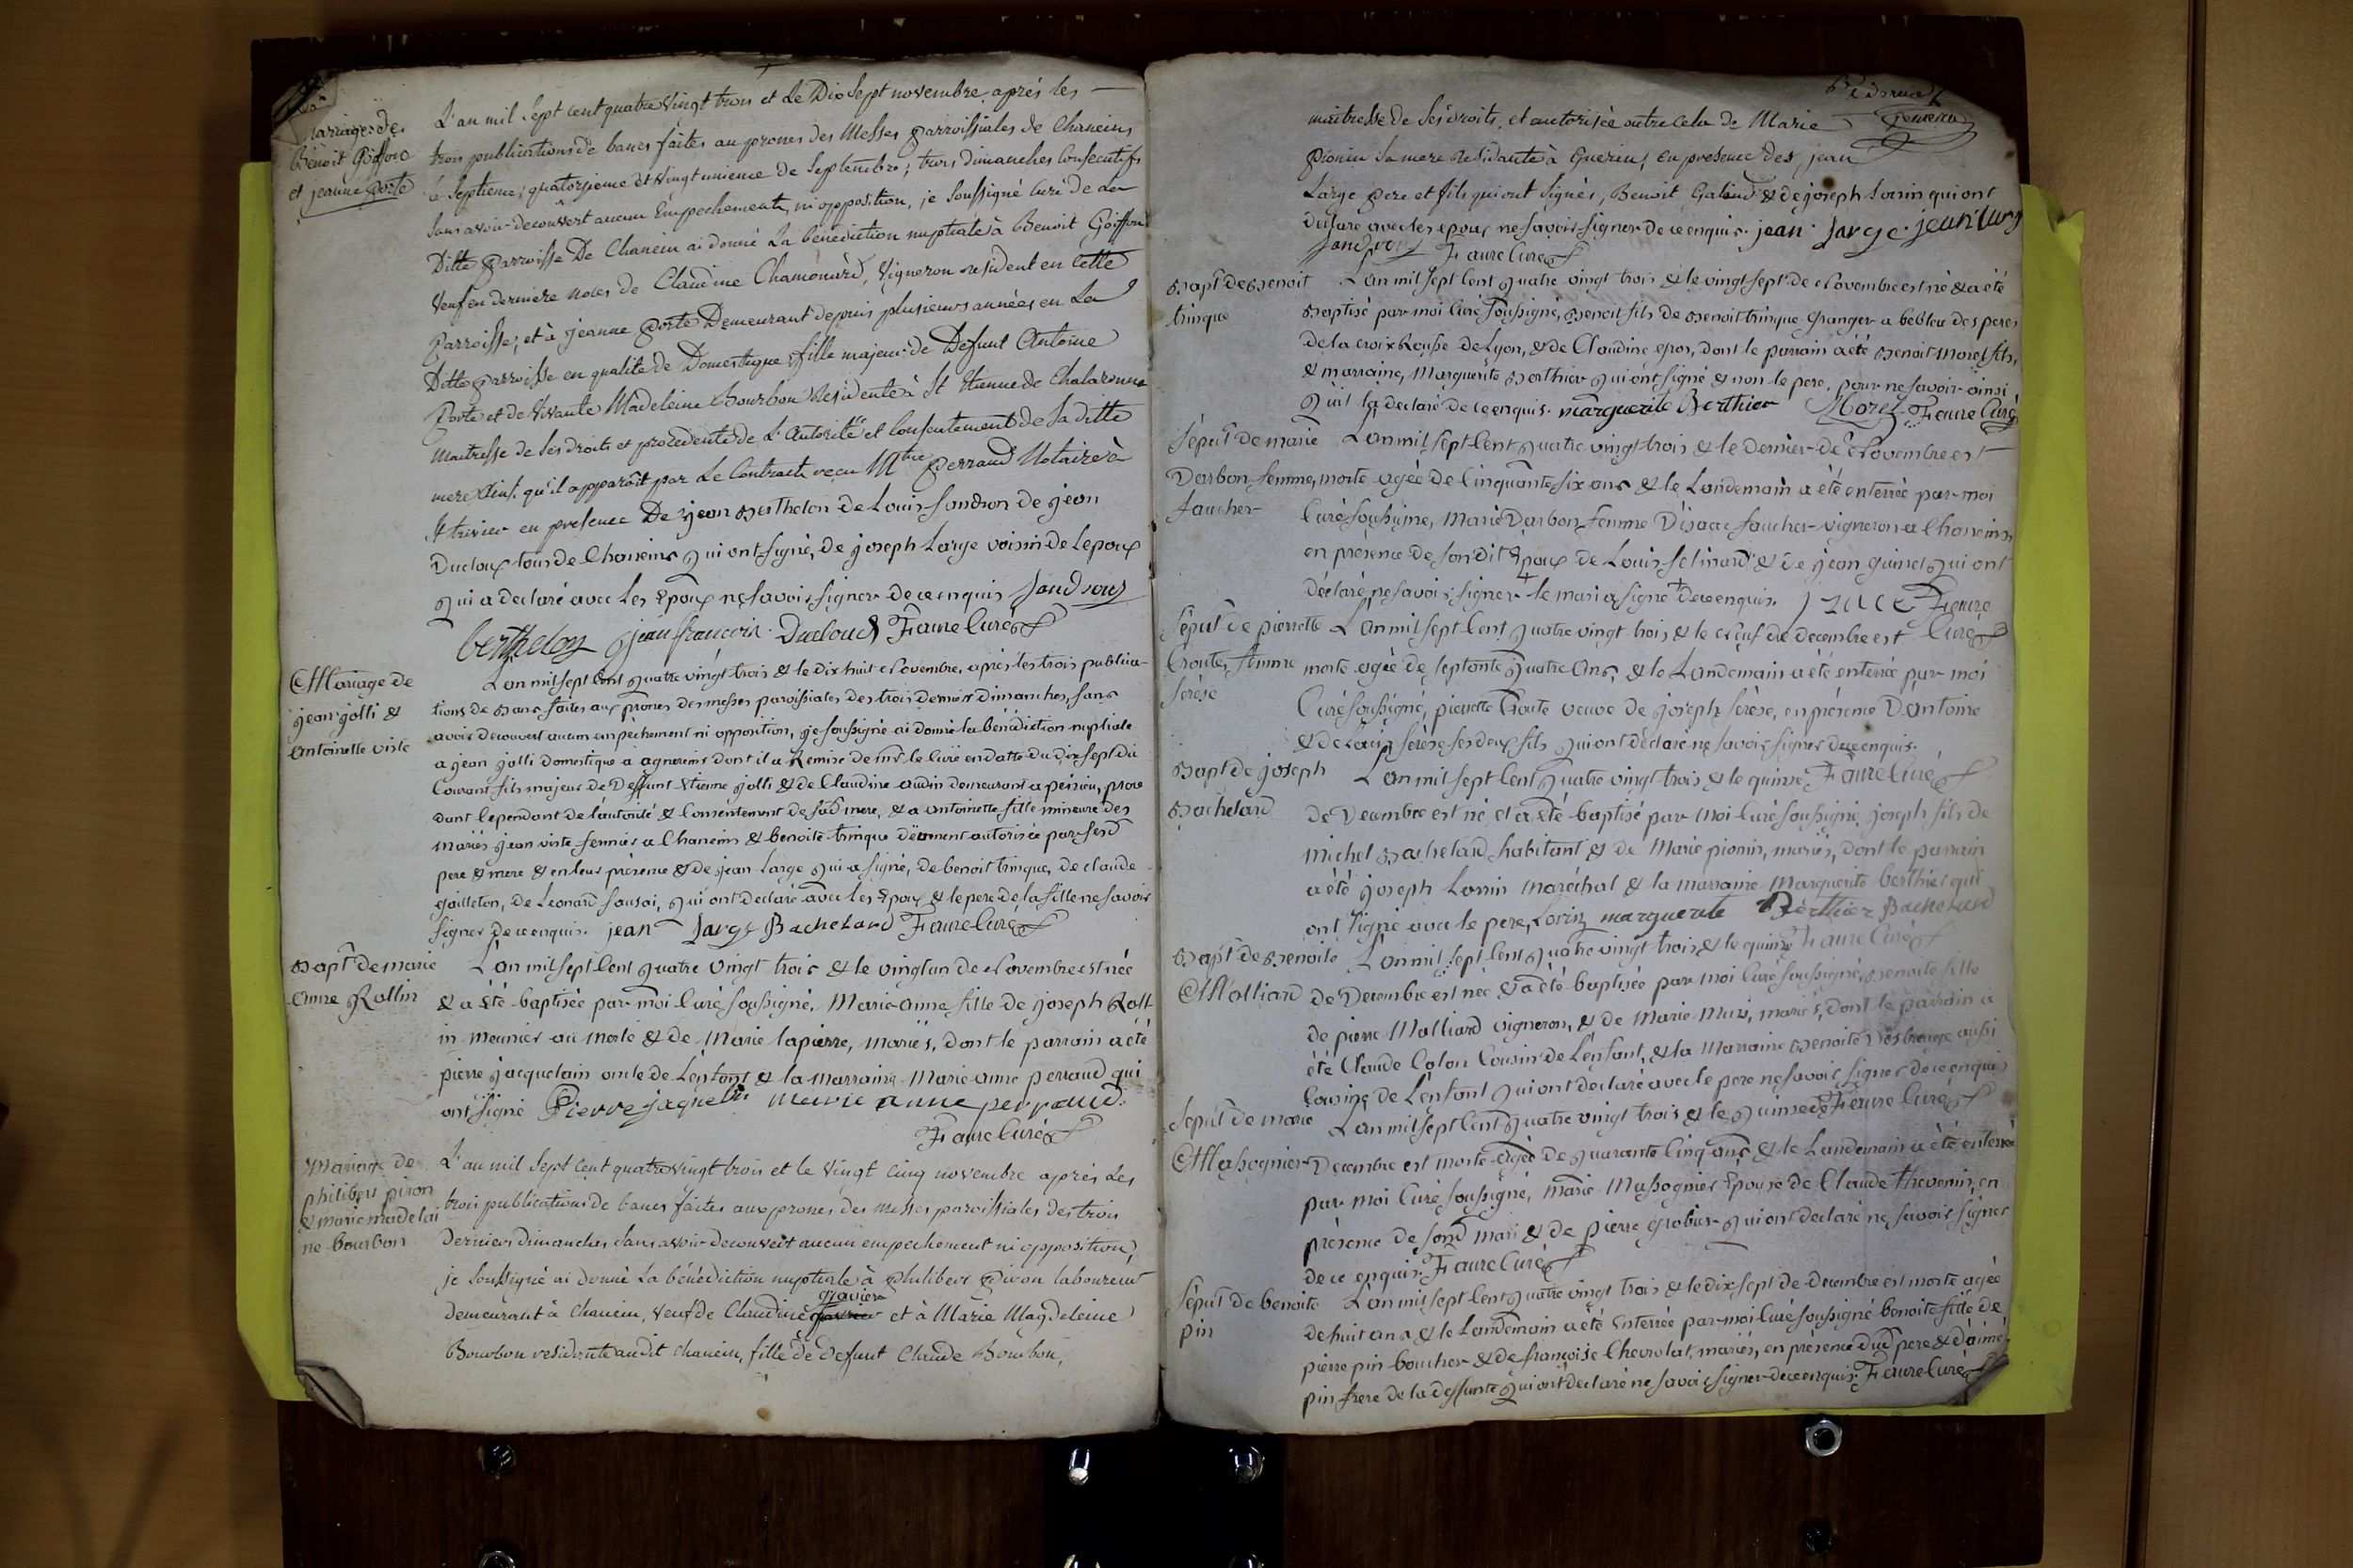 mariage de
Benoit Goiffon
et jeanne porte
L'an mil sept cent quatre vingt trois et Le Dix Sept novembre après les
trois publications de bancs faites au prones des Messes parroissiales de Chaneins
le Septieme, quatorzieme et vingt unieme de Septembre; trois dimanches consecutifs
sans avoir decouvert aucun Empechement, ni opposition, je soussigné curé de La
Ditte parroisse De Chanein ai donné La bénédiction nuptiale à Benoit Goiffon
veuf en derniere noces de Claudine Chamonard, vigneron resident en Cette
parroisse; et à jeanne porte Demeurant depuis plusieurs années en La
Ditte parroisse en qualité de Domestique fille majeure de Defunt Antoine
Porte et de vivante Madeleine Bourbon residente à St Etienne de Chalaronne
Maitresse de ses droits et procedente de L'Autorité et consentement de sa ditte
mere Ainsi qu'il apparoit par Le Contract reçu Mtre perraud Notaire à
St trivier en presence De jean Berthelon de Louis Sandron de jean
Ducloux tous de Chaneins qui ont signé, de joseph Large voisin de Lepoux
qui a declaré avec Les Epoux ne savoir signer de ce enquis Sandron
berthelon jean francois Ducloud Faure Curé
Mariage de
jean jolli &
antoinette viste
L'an mil sept cent quatre vingt trois & le dix huit Novembre, après les trois publica-
tions de bans faites aux prones des messes paroissiales des trois derniers dimanches, sans
avoir decouvert aucun empêchement ni opposition, je soussigné ai donné la bénédiction nuptiale
a jean jolli domestique a agnereins dont il a Remise de mr le curé en datte du dix sept du
Courant fils majeur de Deffunt Etienne jolli & de Claudine audin demeurant a pésieu, proce
dant cependant de l'autorité & consentement de sad mere, & a antoinette fille mineure des
mariés jean viste fermier a Chaneins & benoite trinque dûement autorisée par sesd
pere & mere & en leur présence & de jean Large qui a signé, de benoit trinque, de claude
gailleton, de Leonard sausai, qui ont declaré avec les Epoux & le pere de la fille ne savoir
signer de ce enquis. jean Large Bachelard Faure Curé
Bapt de marie
Anne Rollin
L'an mil sept cent quatre vingt trois & le vingt un de Novembre est née
& a été baptisée par moi Curé soussigné, Marie anne fille de joseph Roll-
in meunier au Morte & de Marie lapierre, mariés, dont le parrain a été
pierre jacquetain oncle de L'enfant & la marraine Marie anne perraud qui
ont signé Pierre jaque marie anne perraud
Faure Curé
Mariage de
philibert piron
& marie madelai
ne bourbon
L'an mil sept cent quatre vingt trois et le vingt cinq novembre après Les
trois publications de bancs faites aux prones des messes paroissiales des trois
Derniers dimanches sans avoir decouvert aucun empechement ni opposition,
je soussigné ai donné La bénédiction nuptiale à philibert piron laboureur
graviere
demeurant à Chanein, veuf de Claudine et à Marie Magdeleine
Bourbon residente audit Chanein, fille de defunt Claude Bourbon,
maitresse de ses droits, et autorisée outre cela de Marie
pionin sa mere residante à Guerins, en presence des jean
Large pere et fils qui ont signés, Benoit Galand & de joseph Lorin qui ont
declaré avec les epoux ne savoir signer de ce enquis. jean Large. jean Larg
Sandron Faure Curé
Bapt de Benoit
trinque
L'an mil sept cent quatre vingt trois & le vingt sept de Novembre est né & a été
Baptisé par moi Curé soussigné, Benoit fils de Benoit trinque Granger a des peres
de la croix Rousse de Lyon, & de Claudine gros, dont le parrain a été Benoit Morel fils,
& marraine, Marguerite Berthier qui ont signé & non le pere, pour ne savoir ainsi
qu'il l'a declaré de ce enquis. marguerite Berthier Morel Faure Curé
Sépult de marie
Darbon femme
faucher
L'an mil sept cent quatre vingt trois & le dernier de Novembre est
morte agée de Cinquante six ans & le Landemain a été enterrée par moi
Curé soussigné, Marie Darbon femme D'isaac faucher vigneron a Chaneins,
en présence de son dit Epoux de Louis & de jean guinet qui ont
déclaré ne savoir signer le mari a signé de ce enquis. Faure
Curé
Sépult de pierrette
Croute femme
serése
L'an mil sept cent quatre vingt trois & le Neuf de decembre est
morte agée de septante quatre ans, & le Landemain a été enterrée par moi
Curé soussigné, pierrette Croute veuve de joseph serése, en présence D'antoine
& de Louis serése ses deux fils qui ont déclaré ne savoir signer de ce enquis.
Faure Curé
Bapt de joseph
Bachelard
L'an mil sept cent quatre vingt trois & le quinze
de Decembre est né et a été baptisé par moi Curé soussigné joseph fils de
michel Bachelard habitant & de Marie pionin, mariés, dont le parrain
a été joseph Lorrin maréchal & la marraine Marguerite berthier qui
ont signé avec le pere, Lorin marguerite Berthier Bachelard
Faure Curé
Bapt de Benoite
Malliard
L'an mil sept cent quatre vingt trois & le quinze
de Decembre est née & a été baptisée par moi Curé soussigné, Benoite fille
de pierre Malliard vigneron, & de Marie Muré, mariés, dont le parrain a
été Claude Colon Cousin de L'enfant, & la Marraine Benoite aussi
Cousine de L'enfant qui ont declaré avec le pere ne savoir signer de ce enquis
Faure Curé
Sépult de marie
Massognier
L'an mil sept cent quatre vingt trois & le quinze de
Decembre est morte agée de quarante cinq ans & le Landemain a été enterrée
par moi Curé soussigné, marie Massognier Epouse de Claude thevenin, en
présence de sond mari & de pierre grobier qui ont declaré ne savoir signer
de ce enquis. Faure Curé
Sépult de benoite
pin
L'an mil sept cent quatre vingt trois & le dix sept de Decembre est morte agée
de huit ans & le Landemain a été Enterrée par moi Curé soussigné benoite fille de
pierre pin boucher & de françoise Chevrolat, mariés, en présence dud pere & d'aimé
pin frere de la deffunte qui ont declaré ne savoir signer de ce enquis. Faure Curé